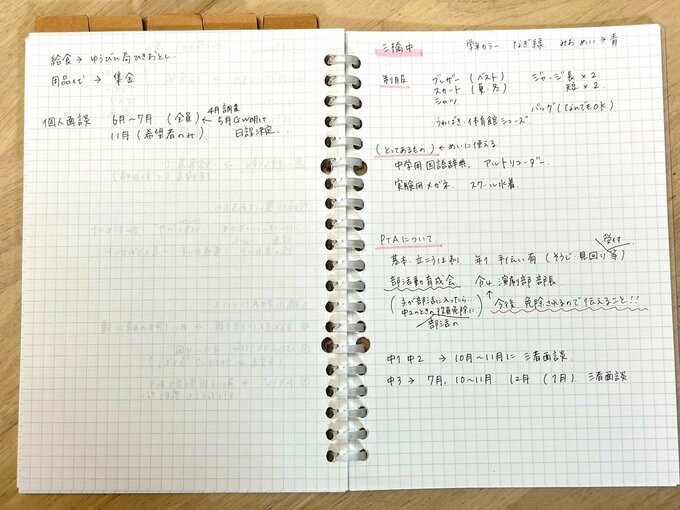 給食 → ゆうびん局ひきおとし.
用品など → 集金
個人面談 5月〜7月 (全員) ← 4月調査
5月GW明け
11月 (希望者のみ) 日程決定..
三橋中 学年カラー なぎ緑. みお・めい → 青
制服 ブレザー (ベスト) ジャージ 長×2
スカート (夏・冬) 短×2.
シャツ バッグ (なんでもOK)
うわばき・体育館シューズ
(とってあるもの) ← めいに使える
中学用国語辞典. アルトリコーダー.
実験用メガネ. スクール水着.
PTAについて 受付
基本. 立こうほ制 年1 手伝い有 (そうじ・見回り等)
部活動育成会 令4. 演劇部部長
(子が部活に入ったら 今後 免除されるので伝えること!!
中2のときの役員免除に)
部活の
中1 中2 → 10月〜11月に 三者面談
中3 → 7月, 10〜11月. 12月 (1月). 三者面談